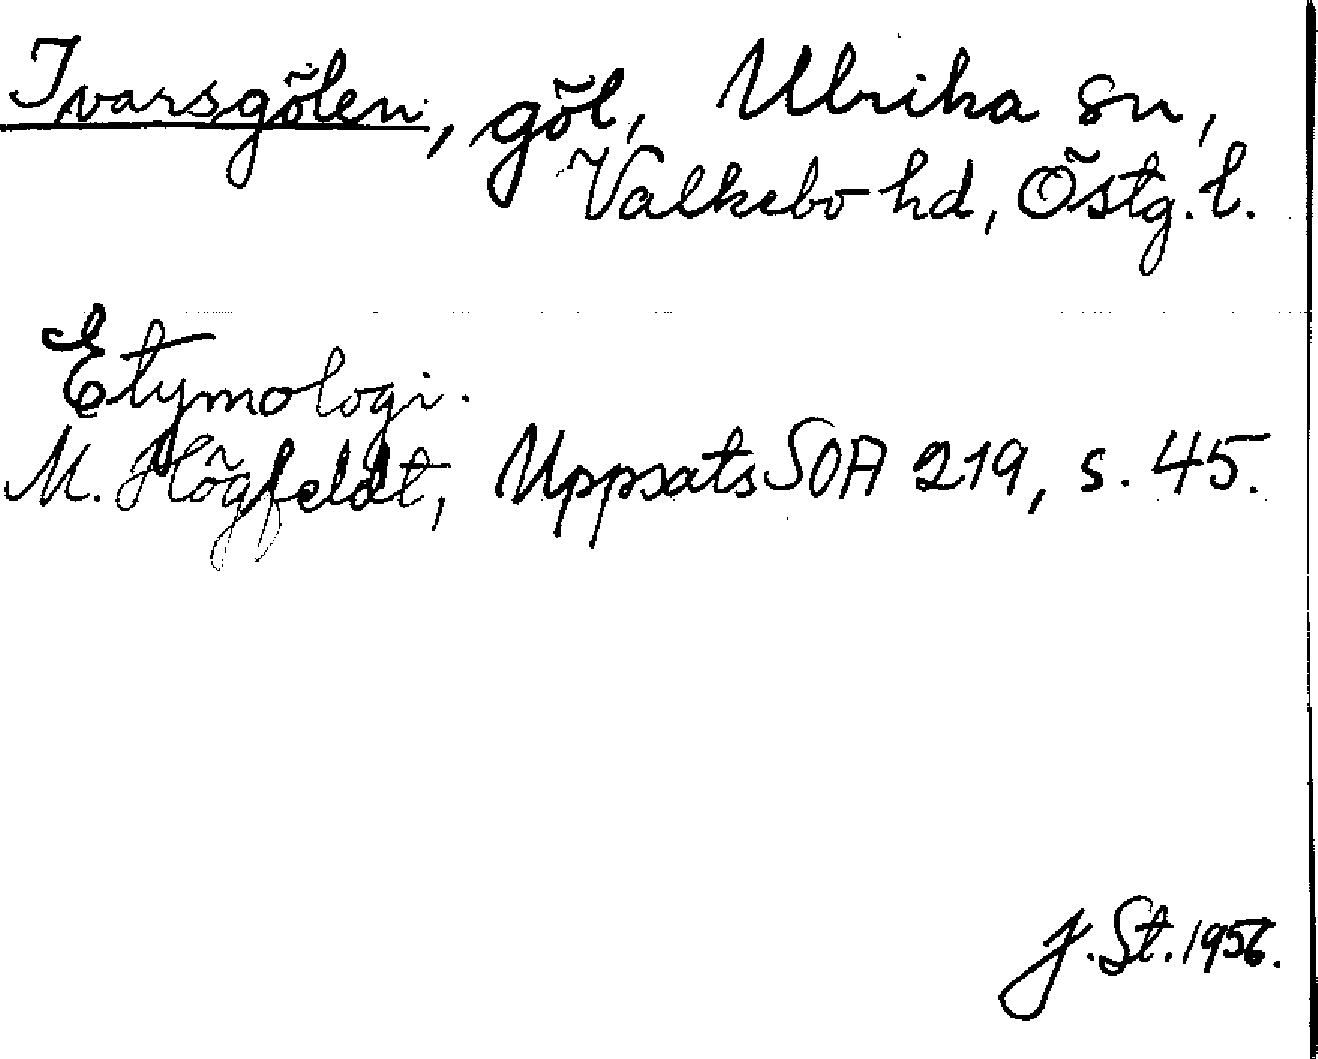 Ivarsgölen, göl, Ulrika sn,
Valkebo hd, Östg. l.
Etymologi.
M. Högfeldt, Uppsats SOA 219, s. 45.
J. St. 1956.